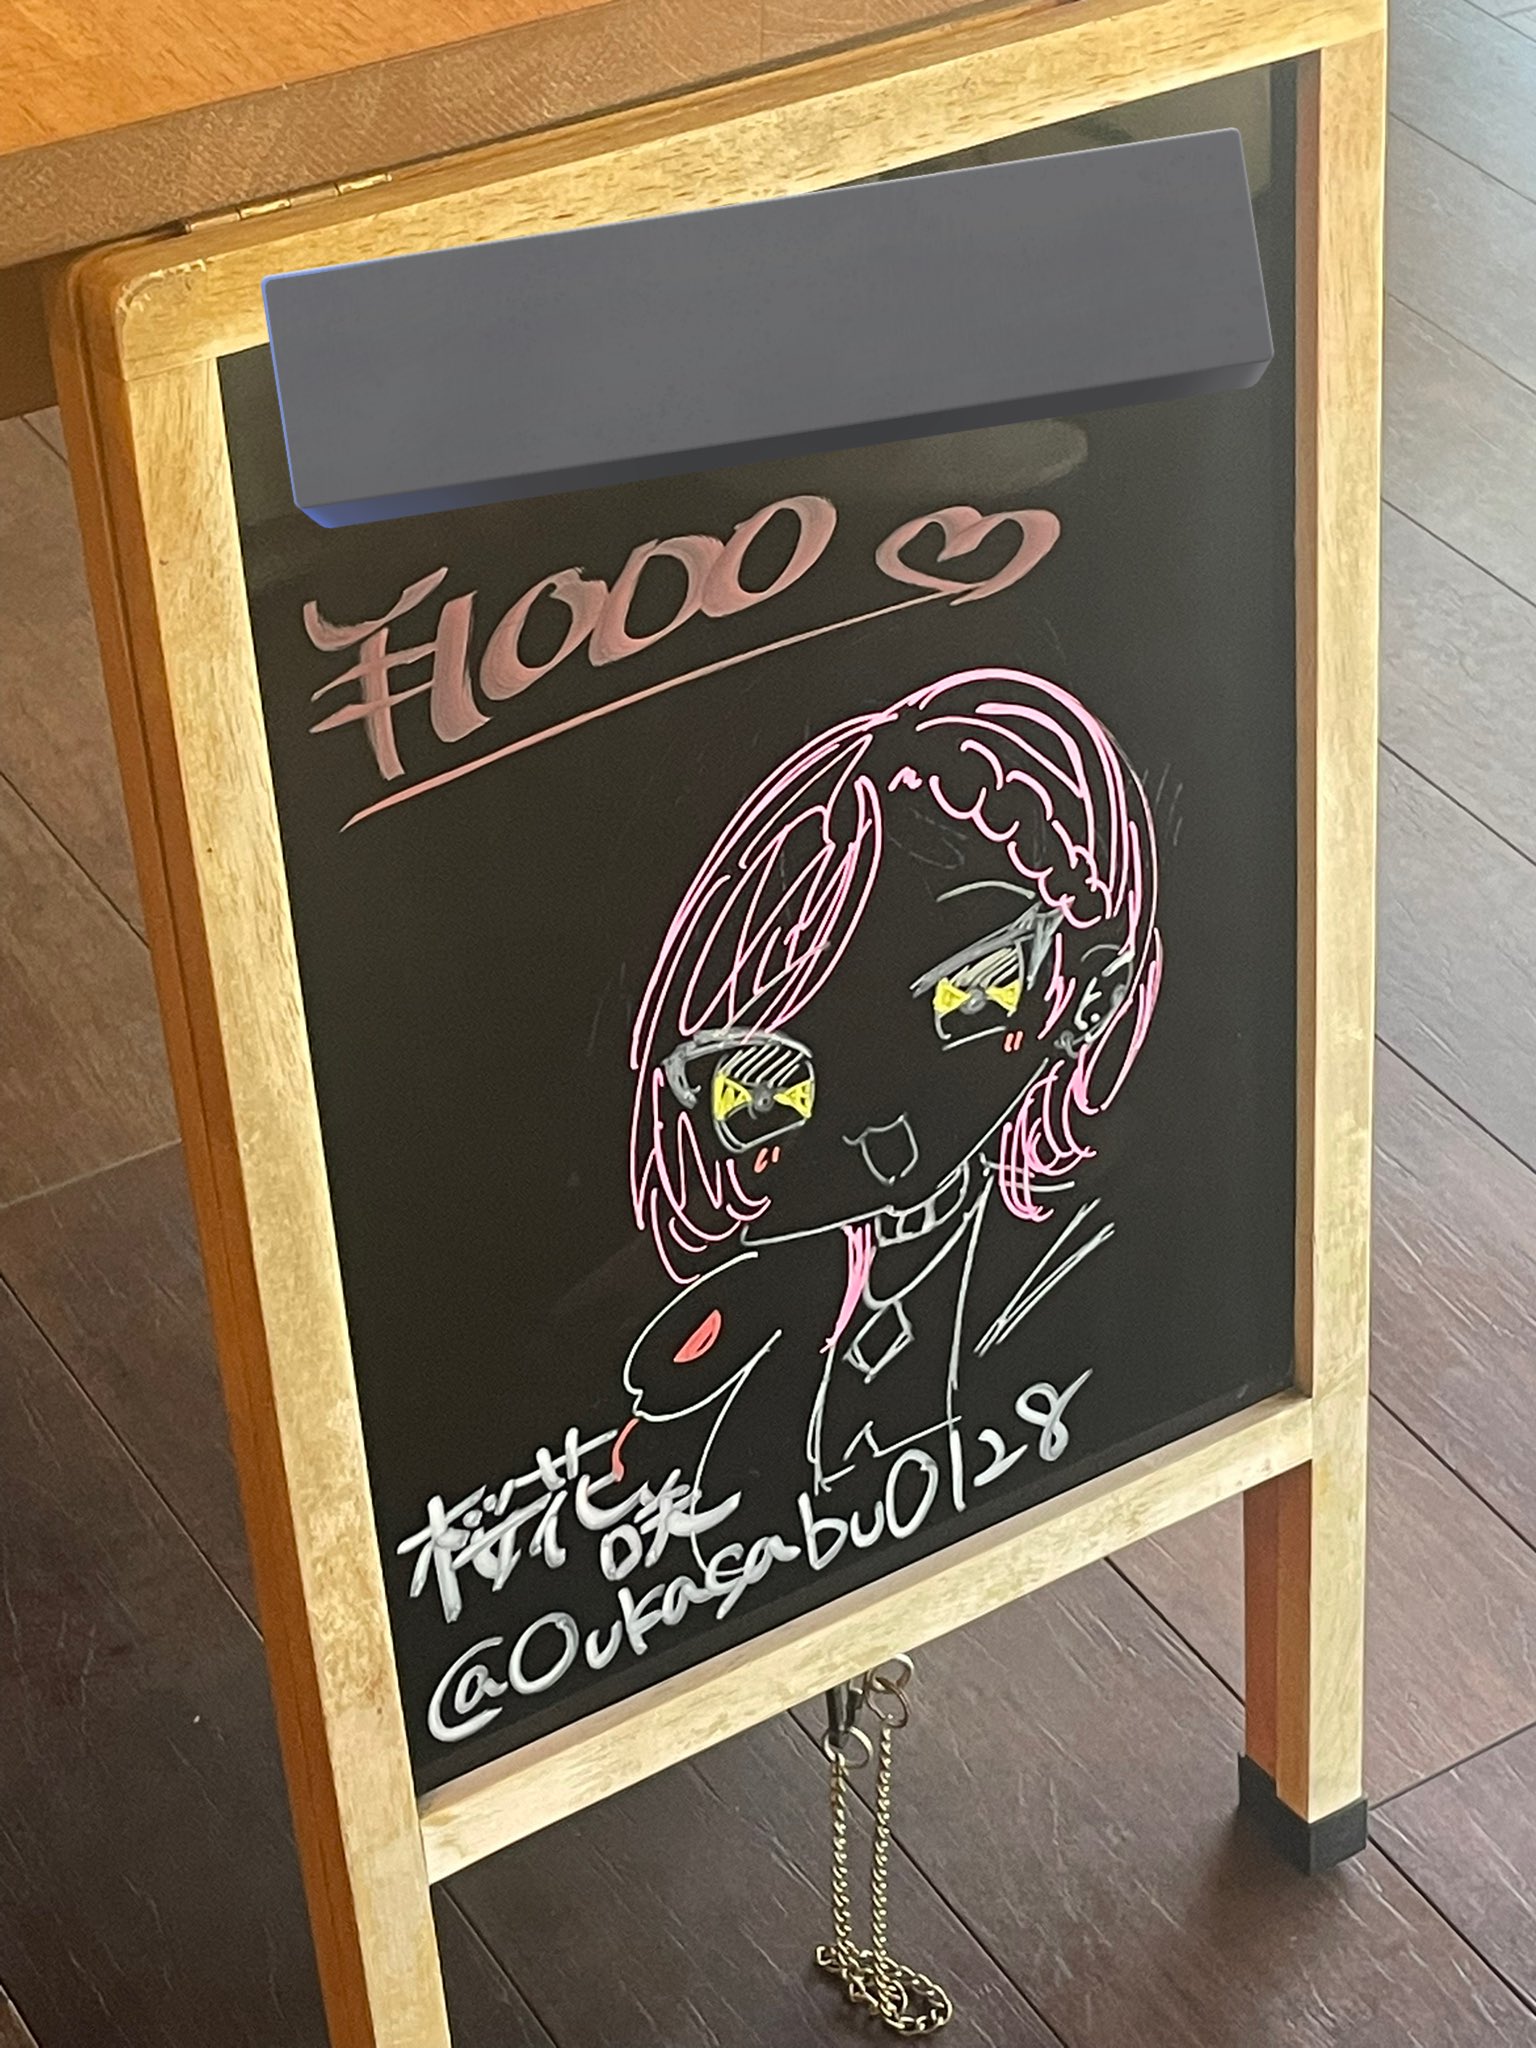 ¥1000♡
桜花咲
@Oukasabu0128